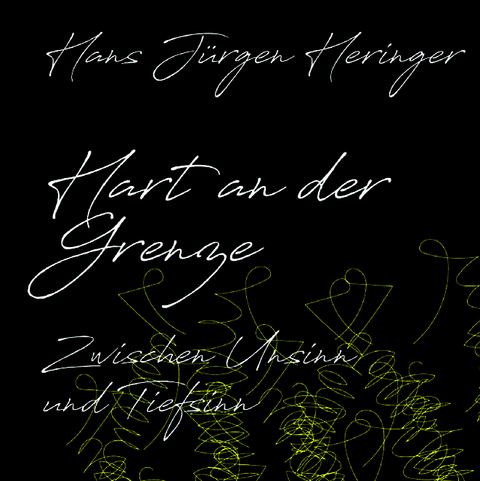 Hans Jürgen Heringer
Hart an der
Grenze
Zwischen Unsinn
und Tiefsinn